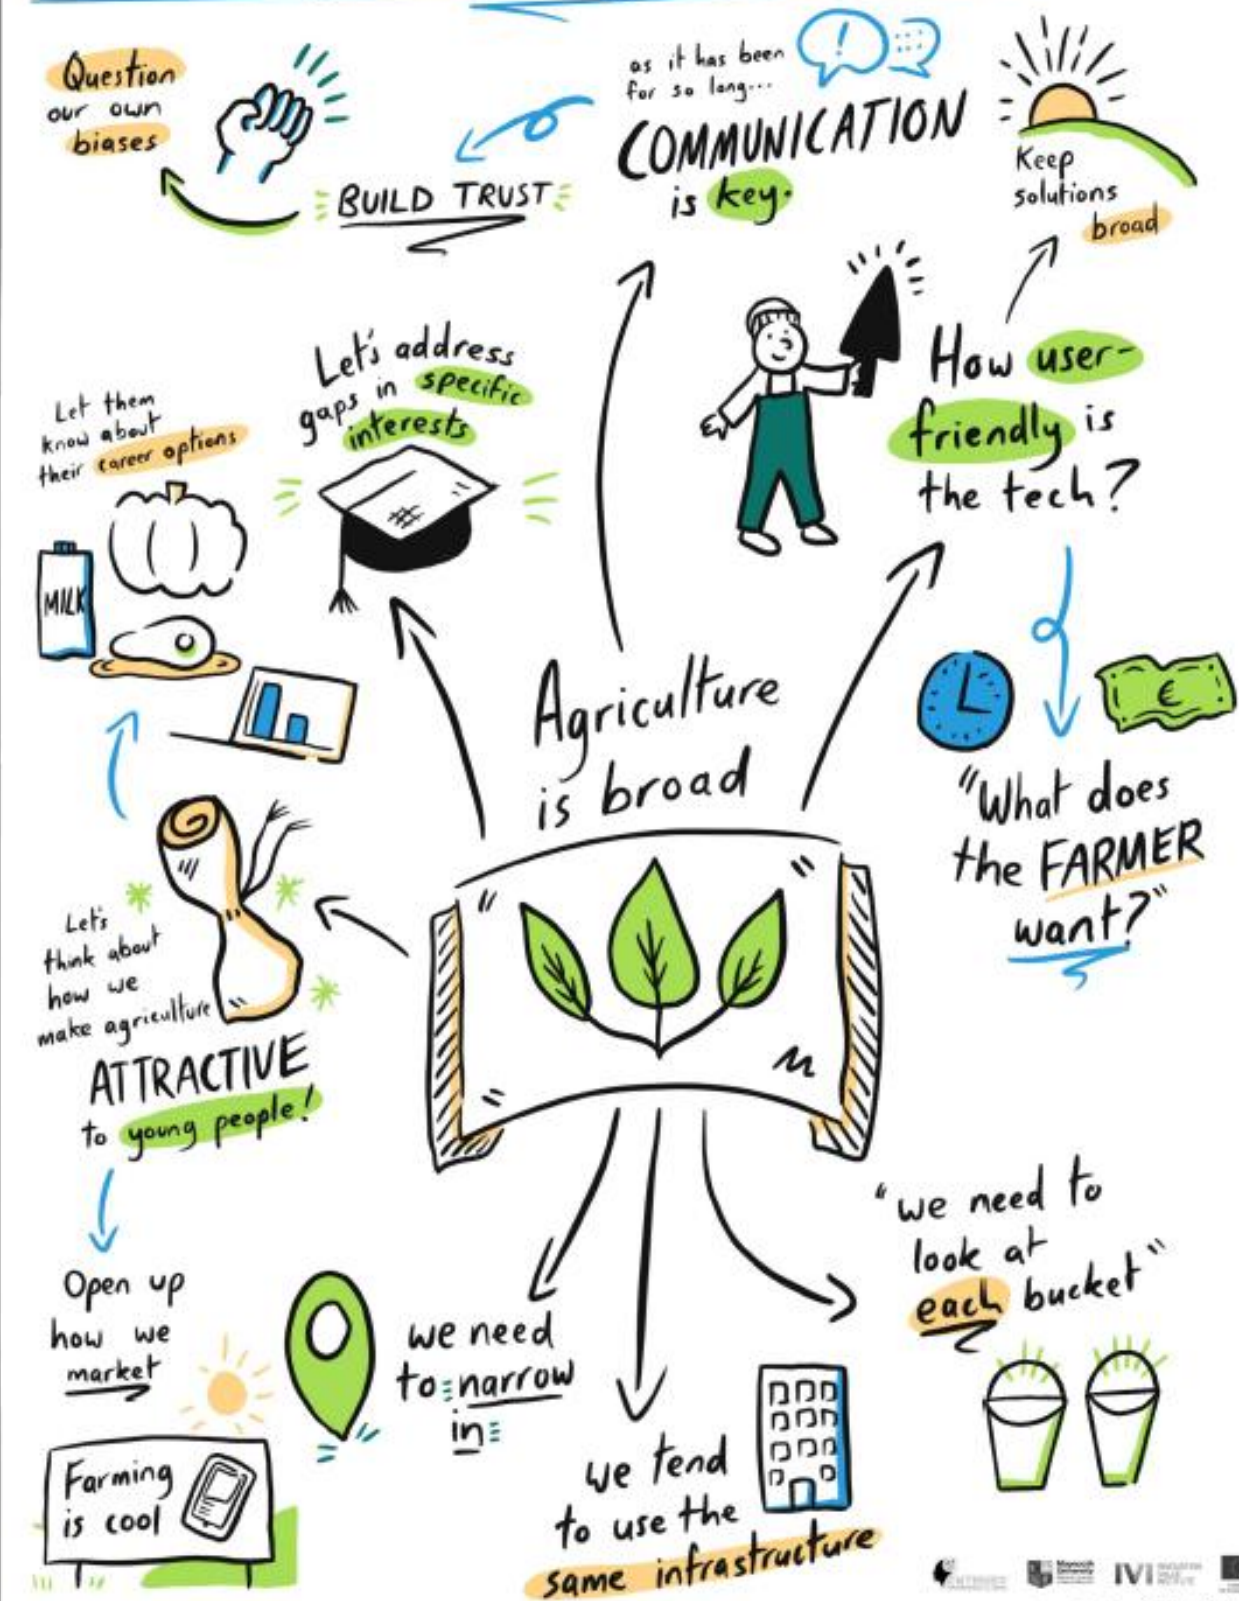 Question
our own
biases
BUILD TRUST
as it has been
for so long...
COMMUNICATION
is key.
Keep
solutions
broad
Let's address
gaps in specific
interests
How user-
friendly is
the tech?
Let them
know about
their career options
MILK
Agriculture
is broad
€
"What does
the FARMER
want?"
Let's
think about
how we
make agriculture
ATTRACTIVE
to young people!
Open up
how we
market
Farming
is cool
we need
to narrow
in
we tend
to use the
same infrastructure
"we need to
look at
each bucket"
Maynooth
University
IVI